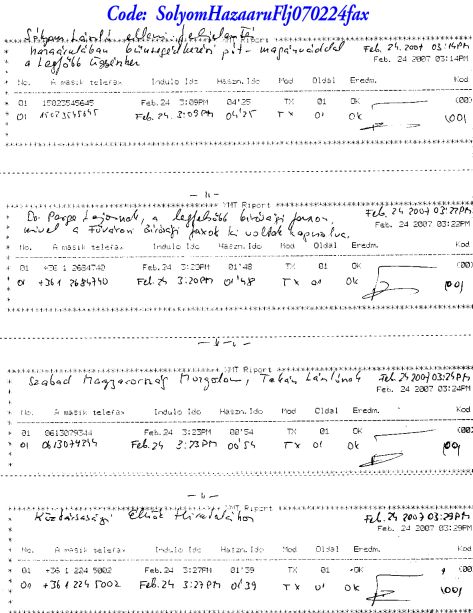 Code: SolyomHazaaruFlj070224fax
Sólyom László elleni feljelentés
hazaárulásban bűnsegédkezési pót-magánváddal
a Legfőbb Ügyészhez
XMT Riport
Feb. 24. 2007 03:14PM
Feb. 24 2007 03:14PM
No. A masik telefax Indulo Ido Haszn.Ido Mod Oldal Eredm. Kod
01 15023545645 Feb.24 3:09PM 04'25 TX 01 OK (00)
01 15023545645 Feb. 24. 3:09PM 04'25 TX 01 OK (00)
XMT Riport
Dr. Parga Lajosnak, a legfelsőbb bírósági faxon,
mivel a Fővárosi Bírósági faxok ki voltak kapcsolva.
Feb. 24 2007 03:22PM
Feb. 24 2007 03:22PM
No. A masik telefax Indulo Ido Haszn.Ido Mod Oldal Eredm. Kod
01 +36 1 2684740 Feb.24 3:20PM 01'48 TX 01 OK (00)
01 +36 1 2684740 Feb.24 3:20PM 01'48 TX 01 OK (00)
XMT Riport
Szabad Magyarország Mozgalom,
Feb. 24 2007 03:24PM
Feb. 24 2007 03:24PM
No. A masik telefax Indulo Ido Haszn.Ido Mod Oldal Eredm. Kod
01 0613079344 Feb.24 3:23PM 00'54 TX 01 OK (00)
01 Feb.24 3:23PM 00'54 TX 01 OK (00)
XMT Riport
Köztársasági Elnök Hivatalában
Feb. 24 2007 03:29PM
Feb. 24 2007 03:29PM
No. A masik telefax Indulo Ido Haszn.Ido Mod Oldal Eredm. Kod
01 +36 1 224 5002 Feb.24 3:27PM 01'39 TX 01 OK (00)
01 +36 1 224 5002 Feb. 24 3:27PM 01'39 TX 01 OK (00)